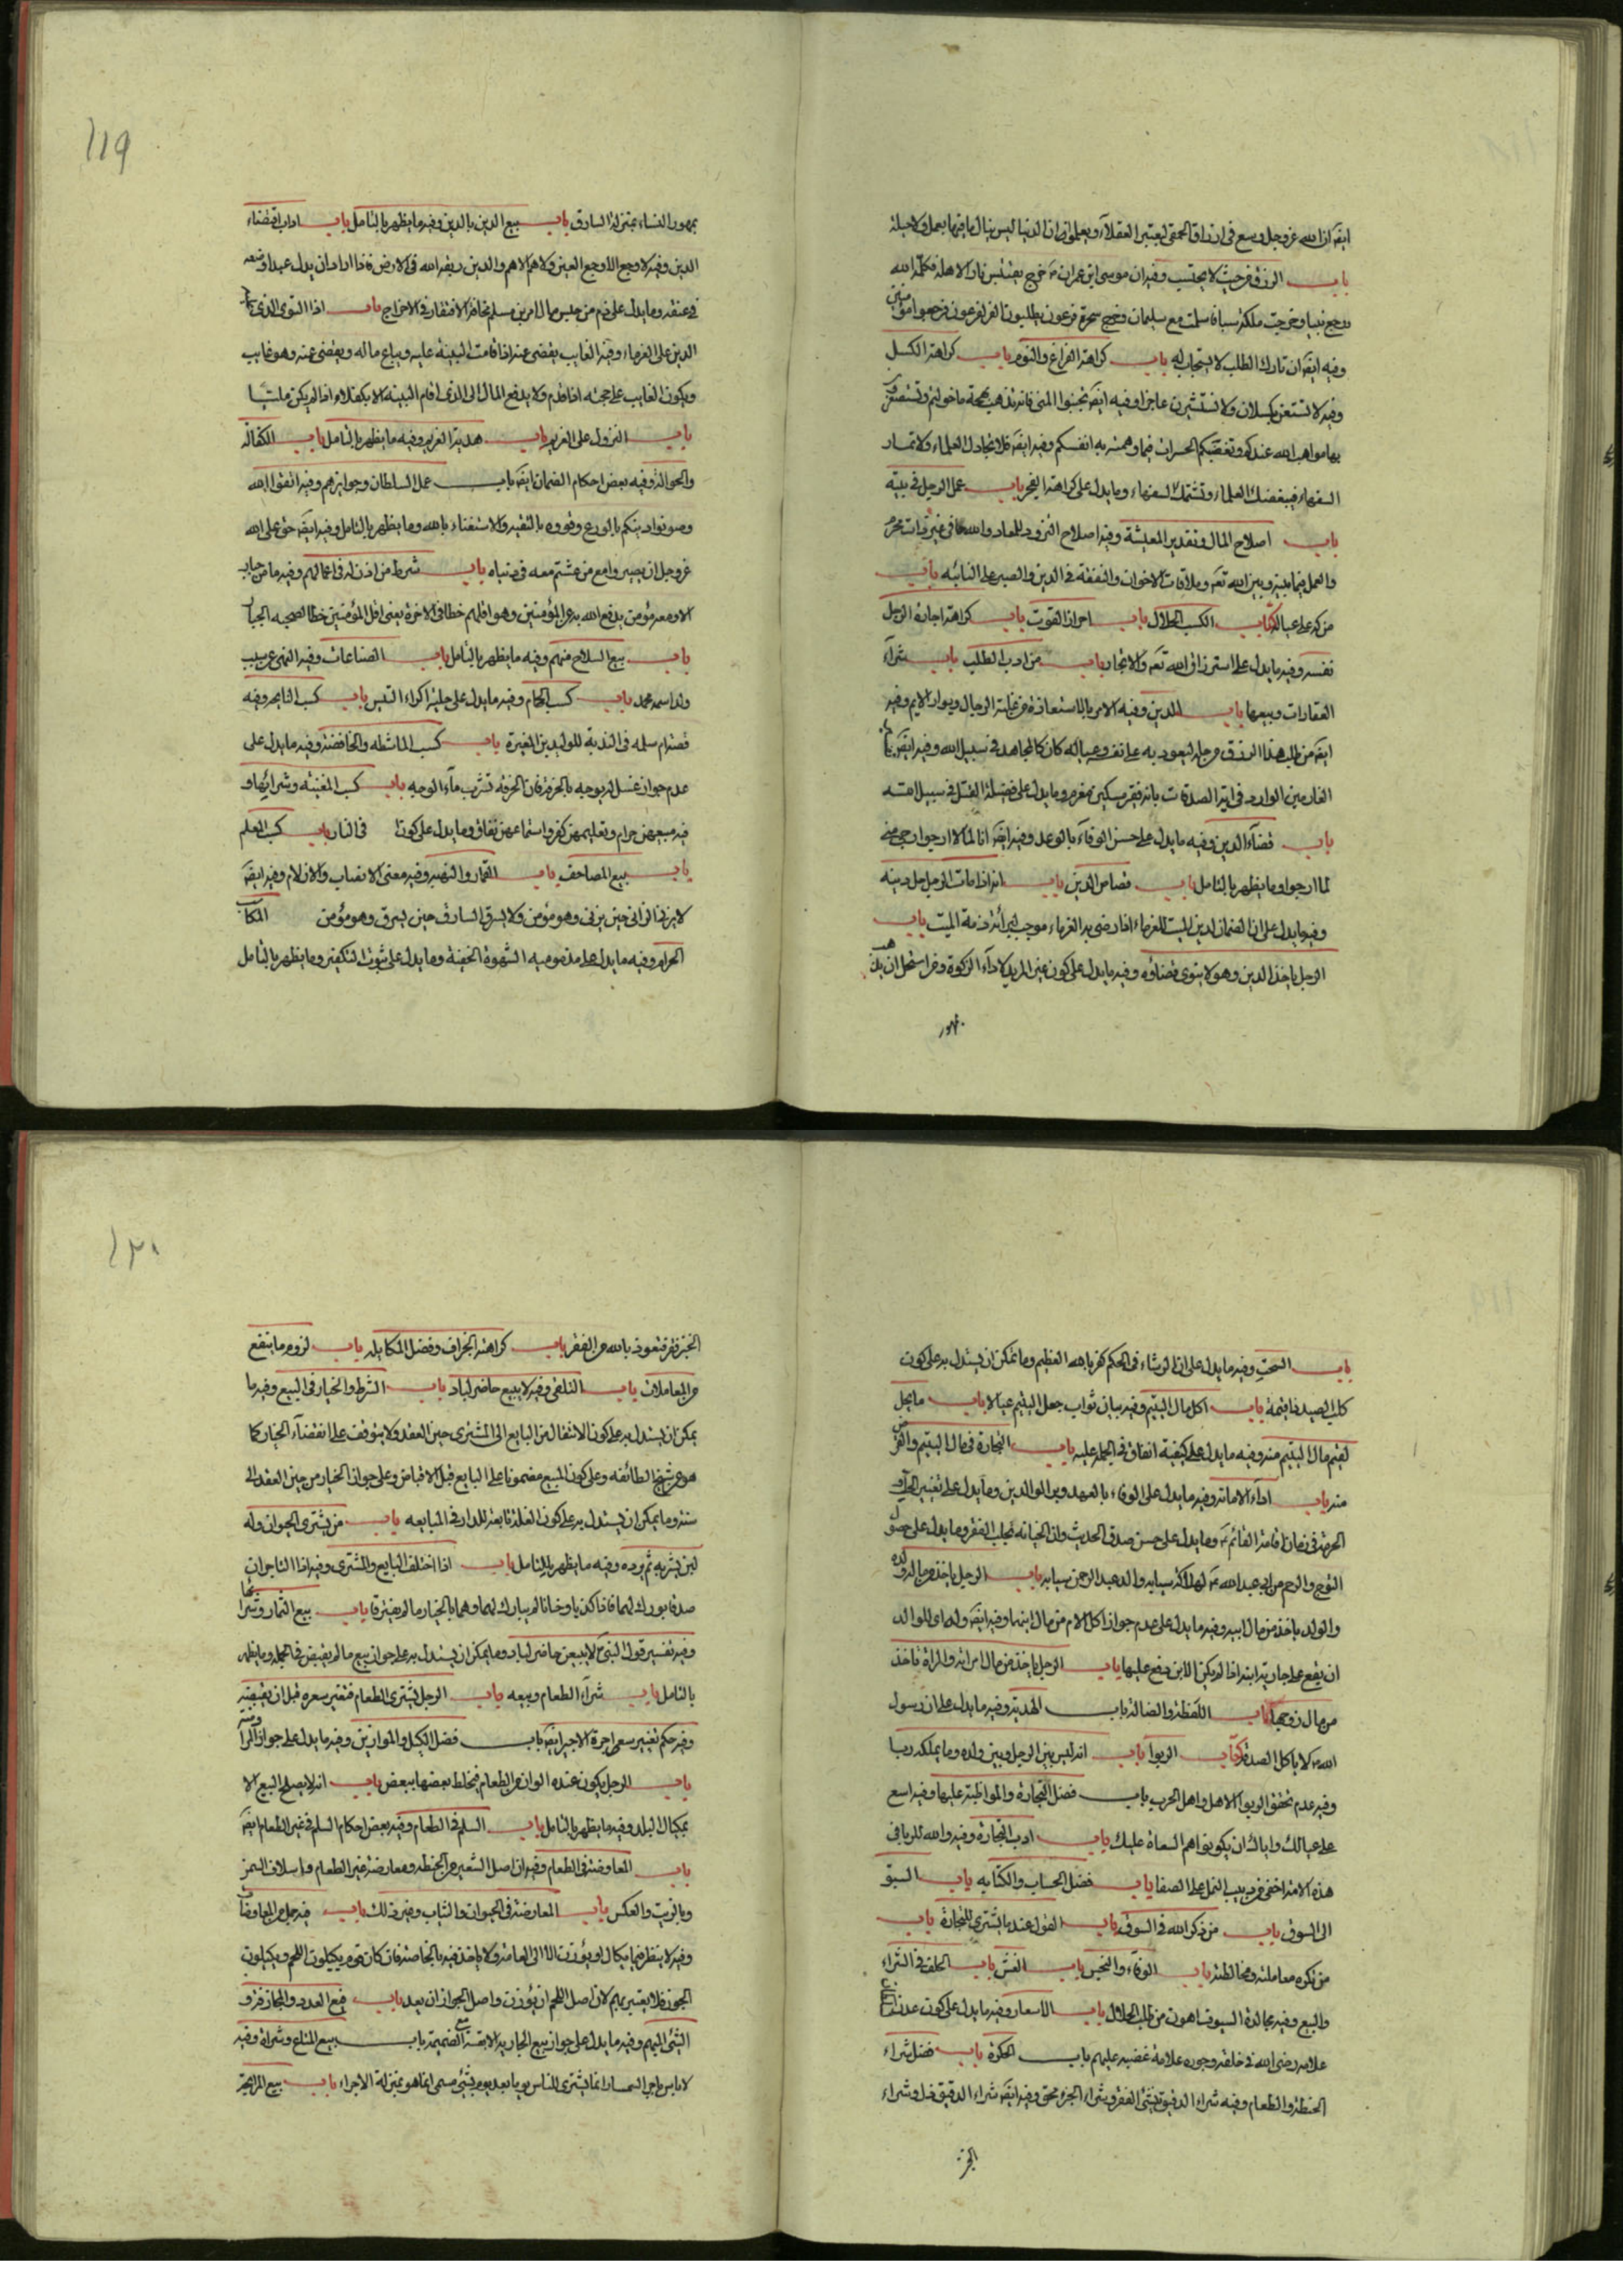 ايضا ان الله عز وجل وسع في ارزاق الحمقى ليعتبر العقلاء ويعلموا ان الدنيا ليس ينال ما فيها بعمل ولا حيلة
باب الرزق من حيث لا يحتسب وفيه ان موسى ابن عمران ع خرج يقتبس نارا لاهله فكلمه الله
ورجع نبيا وخرجت ملكة سبا فاسلمت مع سليمان وخرج سحرة فرعون يطلبون العز لفرعون فرجعوا مؤمنين
وفيه ايضا ان تارك الطلب لا يستجاب له باب كراهة الفراغ والنوم باب كراهة الكسل
وفيه لا تستعن بكسلان ولا تستشيرن عاجزا وفيه ايضا تجنبوا المنى فانه تذهب بهجة ما خولتم وتستصغرون
بها مواهب الله عندكم وتعقبكم الحسرات فيما وهمتم به انفسكم وفيه ايضا فلا تجادل العلماء ولا تمار
السفهاء فيبغضك العلماء وتشتمك السفهاء وما يدل على كراهة الضجر باب عمل الرجل في بيته
باب اصلاح المال وتقدير المعيشة وفيه اصلاح التزود للمعاد واللهو في غير ذات محرم
والعمل فيما بينه وبين الله تعه وملاقات الاخوان والنفقة في الدين والصبر على النائبه باب
من كد على عياله كتاب الكسب الحلال باب احراز القوت باب كراهة اجارة الرجل
نفسه وفيه ما يدل على استرزاق الله تعه والاتجار باب من ادب الطلب باب شراء
العقارات وبيعها باب الدين وفيه الامر بالاستعاذة من غلبة الرجال وبوار الايم وفيه
ايضا من طلب هذا الرزق من حله ليعود به على نفسه وعياله كان كالمجاهد في سبيل الله وفيه ايضا
الغارمين الوارد في اية الصدقات بانه فقير مسكين مغرم وما يدل على فضيلة القتل في سبيل الله
باب قضاء الدين وفيه ما يدل على حسن الوفاء بالوعد وفيه ايضا انا لما لا ارجوا ارجى منى
لما ارجوا وما يظهر بالتامل باب قصاص الدين باب انه اذا مات الرجل حل دينه
وفيه ما يدل على ان الضمان لدين الميت للغرماء اذا رضى به الغرماء موجب لبرائة ذمة الميت باب
الرجل ياخذ الدين وهو لا ينوى قضاؤه وفيه ما يدل على كون غير المريد لاداء الزكوة ومن استحل ان يذهب
بمهور
119
بمهور النساء بمنزلة السارق باب بيع الدين بالدين وفيه ما يظهر بالتامل باب اداب اقتضاء
الدين وفيه لا وجع الا وجع العين ولا هم الا هم والدين ربقة الله في الارض فاذا اراد ان يذل عبدا وضعه
في عنقه وما يدل على ذم من حبس مال امرئ مسلم مخافة الافتقار في الاخراج باب اذا التوى الذى عليه
الدين على الغرماء وفيه الغايب يقضى عنه اذا قامت البينة عليه ويباع ماله ويقضى عنه وهو غايب
ويكون الغايب على حجته اذا قدم ولا يدفع المال الى الذى اقام البينة الا بكفلاء اذا لم يكن مليا
باب النزول على الغريم باب هدية الغريم وفيه ما يظهر بالتامل باب الكفالة
والحوالة وفيه بعض احكام الضمان ايضا باب عمل السلطان وجوايزهم وفيه اتقوا الله
وصونوا دينكم بالورع وقووه بالتقية والاستغناء بالله وما يظهر بالتامل وفيه ايضا حق على الله
عز وجل ان يصير وا مع من عشتم معه في دنياه باب شرط من اذن له في اعمالهم وفيه ما من جبار
الا ومعه مؤمن يدفع الله به عن المؤمنين وهو اقلهم حظا في الاخرة يعنى اقل المؤمنين حظا لصحبة الجبار
باب بيع السلاح منهم وفيه ما يظهر بالتامل باب الصناعات وفيه النهى عن سبب
ولد اسمه محمد باب كسب الحجام وفيه ما يدل على حلية اكراء التيس باب كسب النايحه وفيه
قصة ام سلمه في الندبة للوليد بن المغيرة باب كسب الماشطه والخافضة وفيه ما يدل على
عدم جواز غسل الوجه بالخرقة فان الخرقه تشرب ماء الوجه باب كسب المغنيه وشرائها و
فيه بيعهن حرام وتعليمهن كفر واستماعهن نفاق وما يدل على كون في النار باب كسب المعلم
باب بيع المصاحف باب القمار والنهبه وفيه معنى الانصاب والازلام وفيه ايضا
لا يزنى الزانى حين يزنى وهو مؤمن ولا يسرق السارق حين يسرق وهو مؤمن المكاسب
الحرام وفيه ما يدل على مذموميه الشهوة الخفية وما يدل على ثبوت التكفير وما يظهر بالتامل
باب السحت وفيه ما يدل على ان الرشاء في الحكم كفر بالله العظيم وما يمكن ان يستدل به على كون
كلب الصيد ذا قيمة باب اكل مال اليتيم وفيه بيان ثواب جعل اليتيم عيالا باب ما يحل
لقيم مال اليتيم منه وفيه ما يدل على كيفية انفاق في الجمله عليه باب التجارة في مال اليتيم والقرض
منه باب اداء الامانة وفيه ما يدل على الوفاء بالعهد وبر الوالدين وما يدل على تغيير
الحرمة في زمان اقامة القائم ع وما يدل على حسن صدق الحديث وان الخيانه تجلب الفقر وما يدل على حصول
باب الرجل ياخذ من مال ولده
والولد ياخذ من مال ابيه وفيه ما يدل على عدم جواز اكل الام من مال ابنها وفيه ايضا
ان يقع على جارية ابنه اذا لم يكن الابن وقع عليها باب الرجل ياخذ من مال امرأته والمرأة تاخذ
من مال زوجها باب اللقطة والضالة باب الهدية وفيه ما يدل على ان رسول
الله ص لا ياكل الصدقه كتاب الربوا باب انه ليس بين الرجل وبين ولده وما يملكه ربا
وفيه عدم تحقق الربوا لاهل واهل الحرب باب فضل التجارة والمواظبة عليها وفيه اسع
على عيالك واياك ان يكونوا هم السعاة عليك باب ادب التجارة وفيه والله للربا في
هذه الامة اخفى من دبيب النمل على الصفا باب فضل الحساب والكتابه باب السبق
الى السوق باب من ذكر الله في السوق باب القول عند ما يشترى للتجارة باب
من تكره معاملته ومخالطته باب الوفاء والبخس باب الغش باب الحلف في الشراء
والبيع وفيه مجالدة السيوف اهون من طلب الحلال باب الاسعار وفيه ما يدل على كون عدل
علامه رضى الله في خلقه وجوره علامة غضبه عليهم باب الحكرة باب فضل شراء
الحنطة والطعام وفيه شراء الدقيق ينشئ الفقر وشراء الخبز محق وفيه ايضا شراء الدقيق ذل وشراء
الخبز
120
الخبز فقر فنعوذ بالله من الفقر باب كراهة الجزاف وفضل المكايله باب لزوم ما ينفع
من المعاملات باب التلقى وفيه لا يبيع حاضر لباد باب الشرط والخيار في البيع وفيه ما
يمكن ان يستدل به على كون الانتقال من البايع الى المشترى حين العقد ولا يتوقف على انقضاء الخيار كما
هو عن شيخ الطائفه وعلى كون المبيع مضمونا على البايع قبل الاقباض وعلى جواز الخيار من حين العقد الى
سنة وما يمكن ان يستدل به على كون الغلة تابعة للدار في المبايعه باب من يشترى الحيوان وله
لبن يشربه ثم يرده وفيه ما يظهر بالتامل باب اذا اختلف البايع والمشترى وفيه اذا التاجران
صدقا بورك لهما فاذا كذبا وخانا لم يبارك لهما وهما بالخيار ما لم يفترقا باب بيع الثمار وشرائها
وفيه تفسير قول النبى ص لا يبيعن حاضر لباد وما يمكن ان يستدل به على جواز بيع ما لم يقبض في الجملة وما يظهر
بالتامل باب شراء الطعام وبيعه باب الرجل يشترى الطعام فتغير سعره قبل ان يقبضه
وفيه حكم تغيير سعر اجرة الاجير ايضا باب فضل الكيل والموازين وفيه ما يدل على جواز
باب الرجل يكون عنده الوان من الطعام فيخلط بعضها ببعض باب انه لا يصلح البيع الا
بمكيال البلد وفيه ما يظهر بالتامل باب السلم في الطعام وفيه بعض احكام السلم في غير الطعام ايضا
باب المعاوضة في الطعام وفيه ان اصل الشعير من الحنطه ومعاوضة غير الطعام واسلاف السمن
وبالزيت والعكس باب المعاوضة في الحيوان والثياب وغير ذلك باب فيه جمل من المعاوضات
وفيه لا ينظر فيما يكال او يوزن الا الى العامة ولا ياخذ فيه بالخاصة فان كان قوم يكيلون اللحم ويكيلون
الجوز فلا يعتبر بهم لان اصل اللحم ان يوزن واصل الجوز ان يعد باب بيع العدد والمجازفة و
الشئ المبهم وفيه ما يدل على جواز بيع الجارية الابقة مع الضميمة باب بيع المتاع وشراؤه وفيه
لا باس باجر السمسار انما يشترى للناس يوما بعد يوم بشئ مسمى انما هو بمنزلة الاجراء باب بيع المرابحة